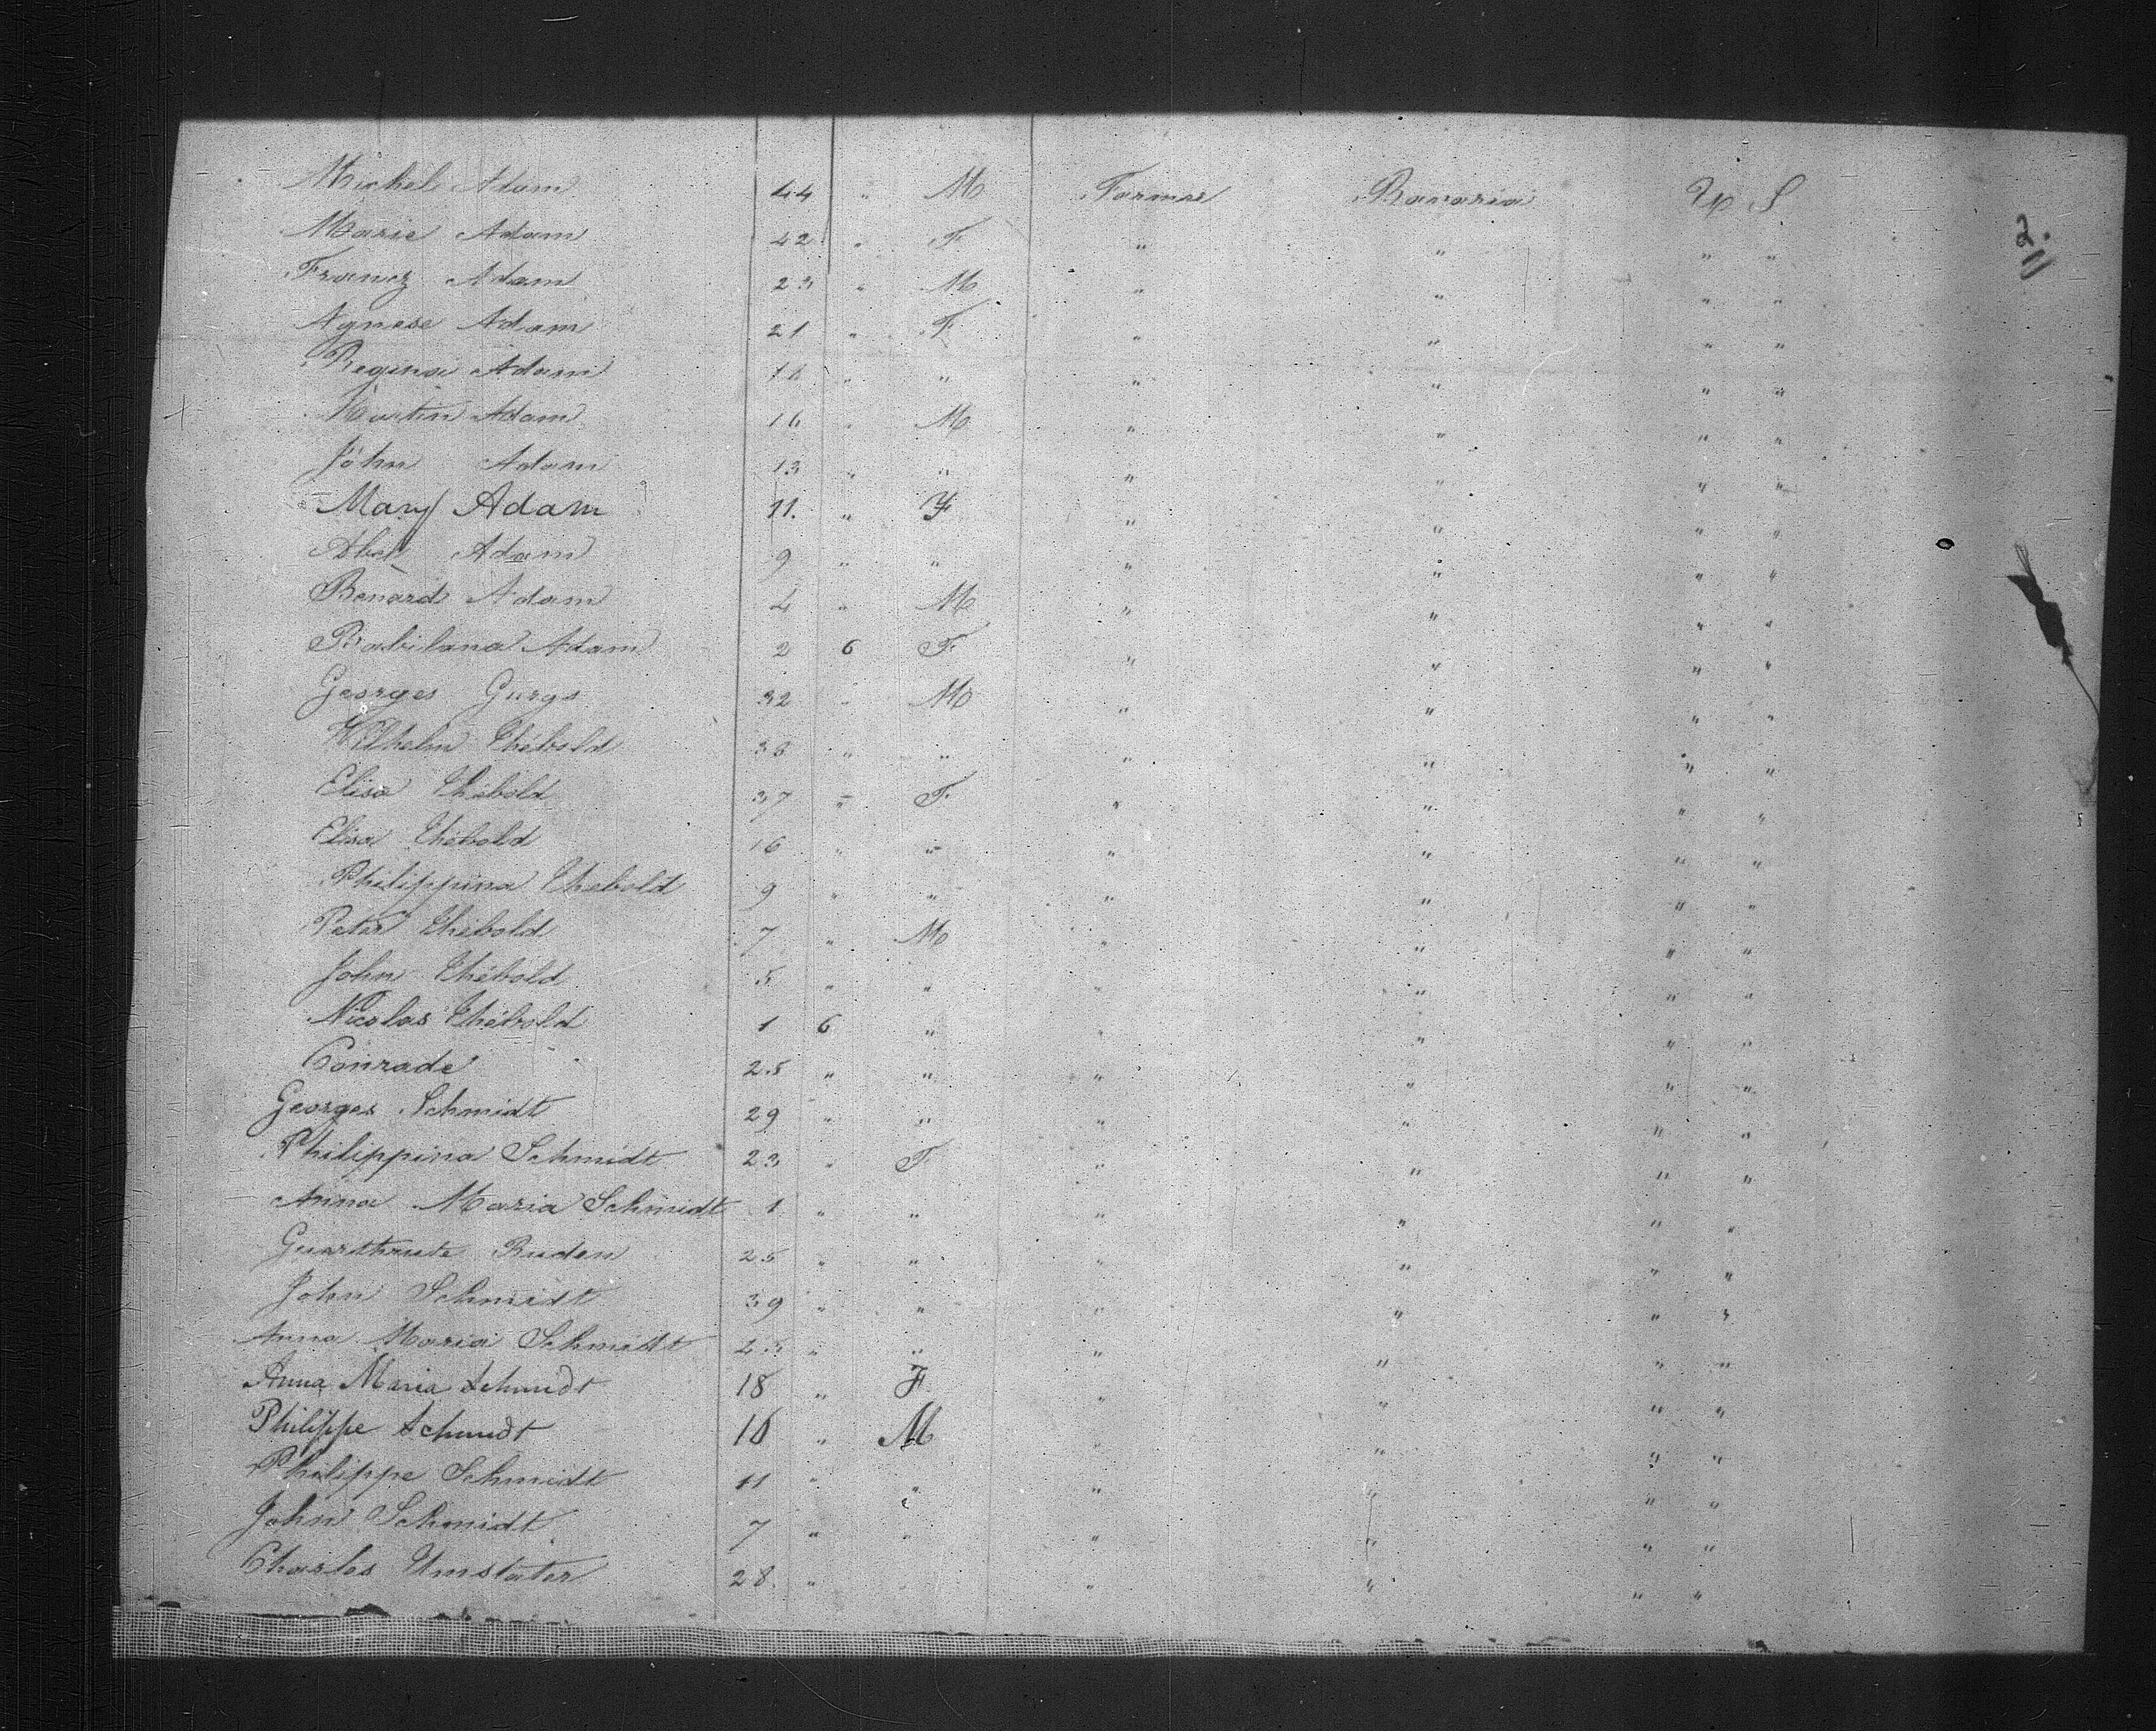 Michel Adam 44 " M Farmer Bavaria U S
2.
Marie Adam 42 " F " " " "
Francz Adam 23 " M " " " "
Agnese Adam 21 " F " " " "
Regina Adam " " " " " "
Martin Adam 16 " M " " " "
John Adam 13 " " " " " "
Mary Adam 11. " F " " " "
Adam 9 " " " " " "
Benard Adam 4 " M " " " "
Adam 2 6 F " " " "
Georges Gurgs 32 " M " " " "
Wilhelm Thébold 33 " " " " " "
Elisa Thébold 37 " F " " " "
Elisa Thébold 16 " " " " " "
Philippina Thebold 9 " " " " " "
Peter Thébold 7 " M " " " "
John Thébold 5 " " " " " "
Nicolas Thébold 1 6 " " " " "
Conrade 25 " " " " " "
Georges Schmidt 29 " " " " " "
Philippina Schmidt 23 " F " " " "
Anna Maria Schmidt 1 " " " " " "
Ruden 25 " " " " " "
John Schmidt 39 " " " " " "
Anna Maria Schmidt " " " " " "
Anna Maria Schmidt 18 " F " " " "
Philippe Schmidt " M " " " "
Philippe Schmidt 11 " " " " " "
John Schmidt 7 " " " " " "
Charles Umstater 28 " " " " "